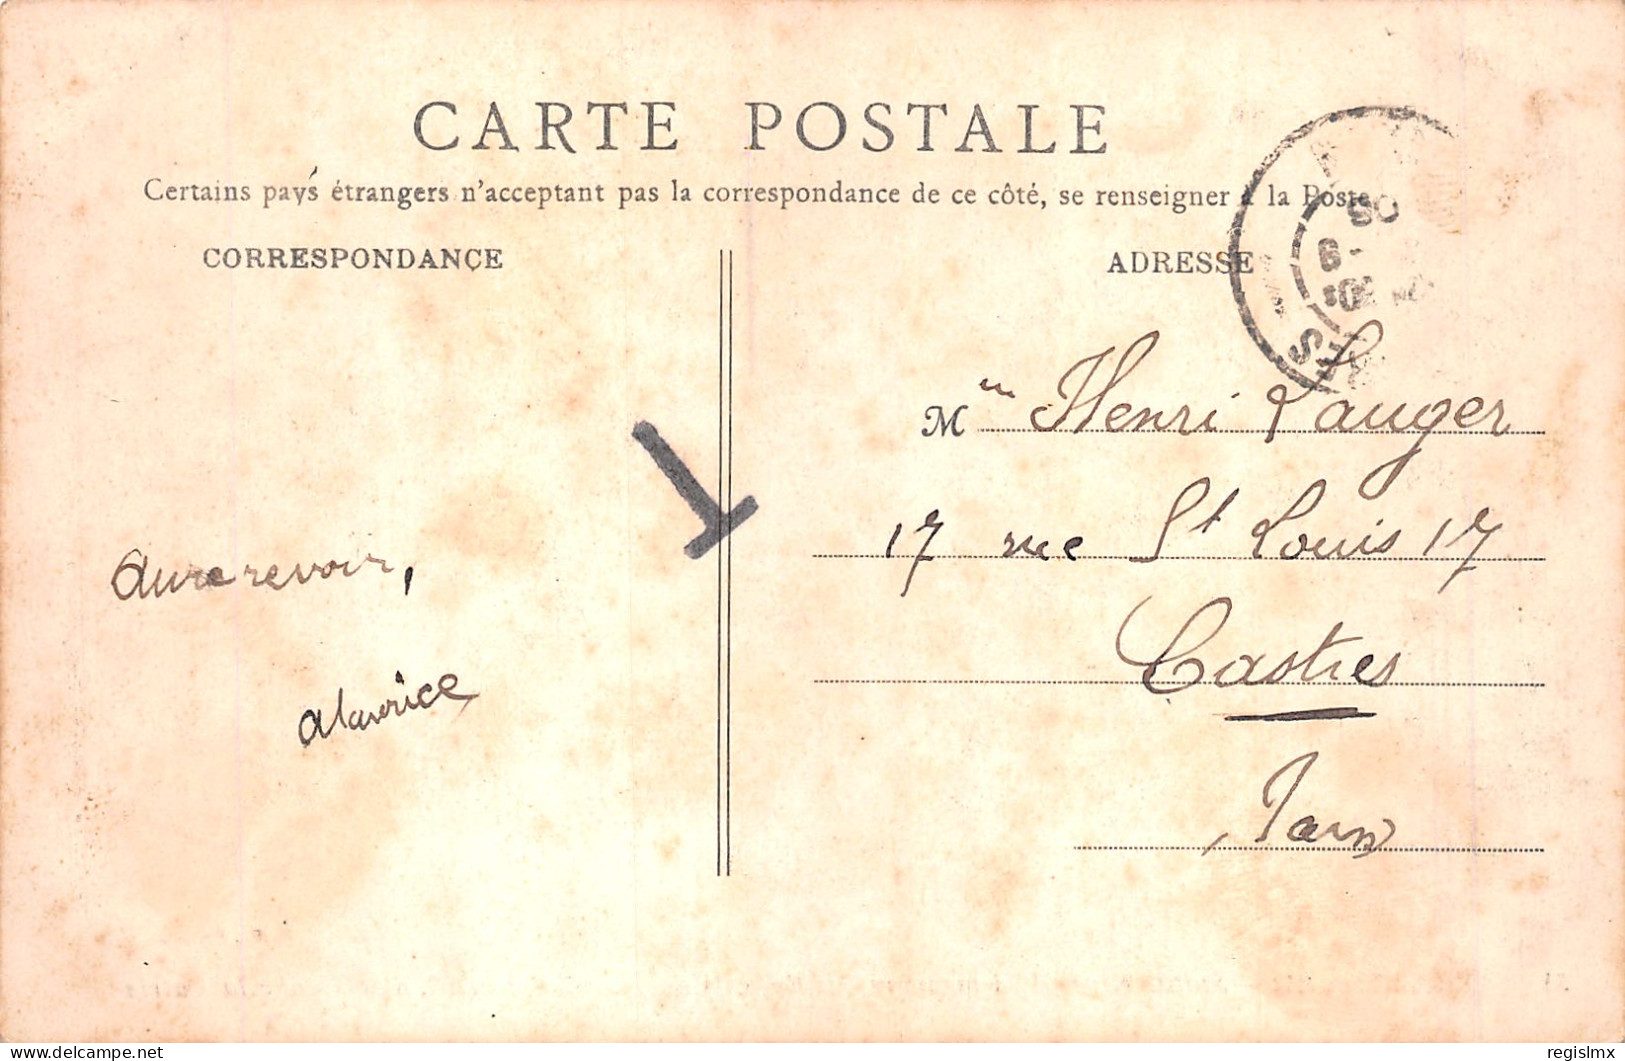 CARTE POSTALE
Certains pays étrangers n'acceptant pas la correspondance de ce côté, se renseigner à la Poste
CORRESPONDANCE
ADRESSE
M Henri Lauger
17 rue St Louis 17
Castres
Tarn
revoir,
Maurice
T
delcampe.net
regislmx